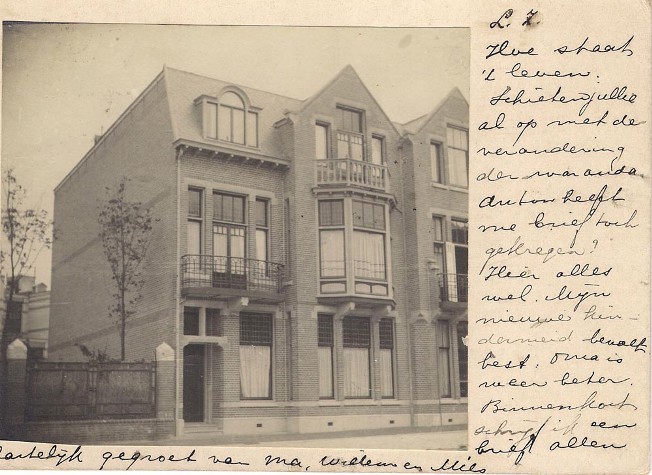 L. Z.
Hoe staat
't leven.
Schieten jullie
al op met de
verandering
der waranda
Anton heeft
me brief toch
gekregen?
Hier alles
wel. Mijn
nieuwe kin-
dermeid bevalt
best. Oma is
weer beter.
Binnenkort
schrijf ik een
brief allen
hartelijk gegroet van ma, Willem en Mies